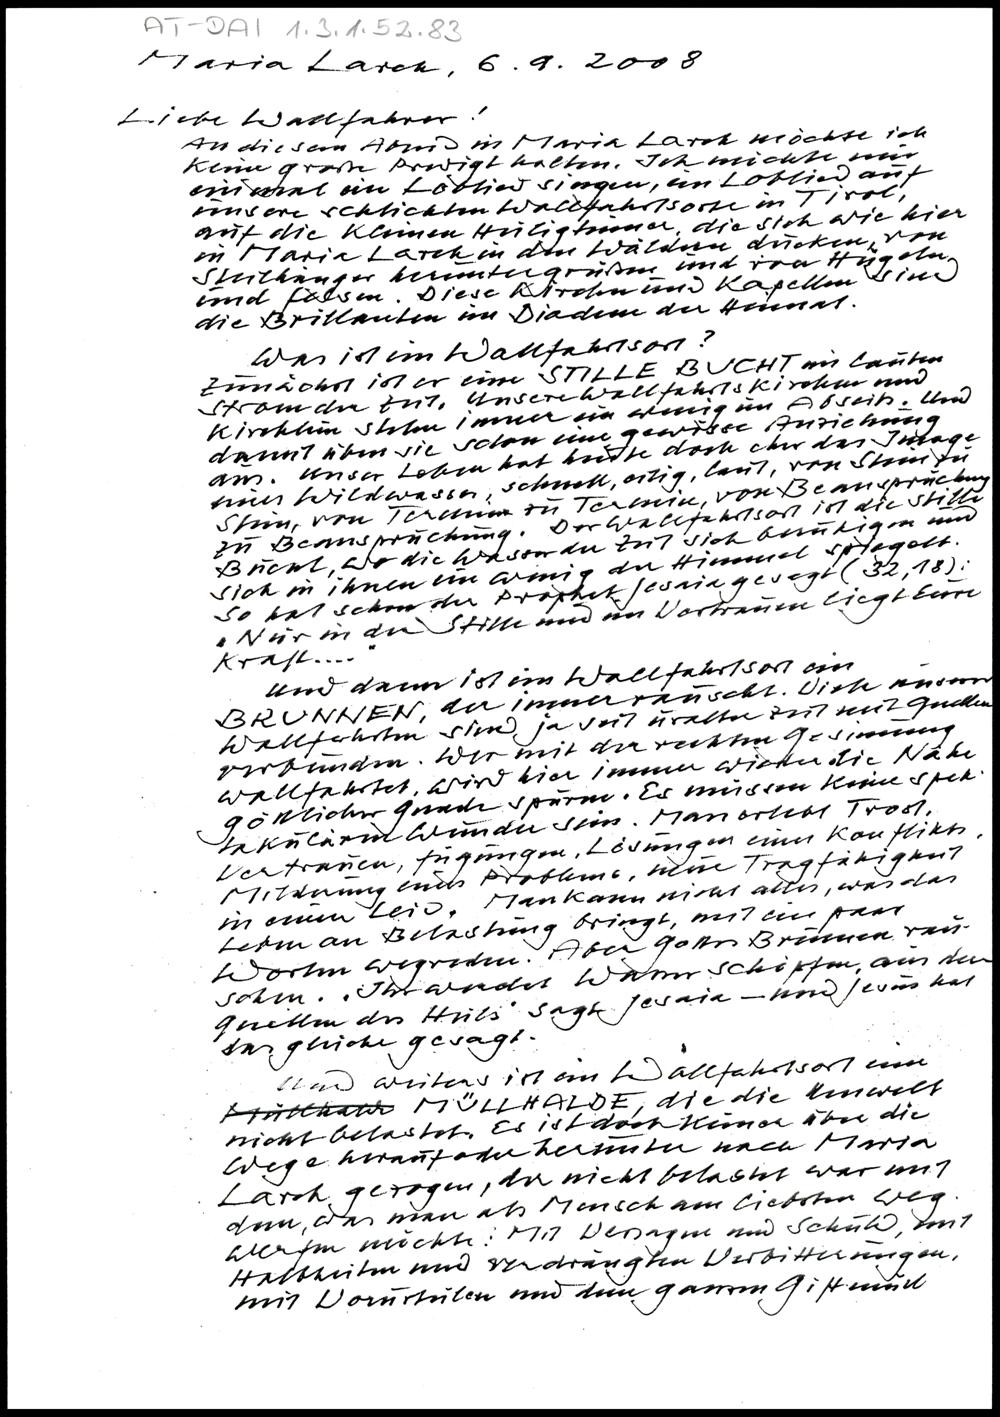 AT-DAI 1.3.1.52.83
Maria Larch, 6.9.2008
Liebe Wallfahrer!
An diesem Abend in Maria Larch möchte ich
keine große Predigt halten. Ich möchte nur
einmal ein Loblied singen, ein Loblied auf
unsere schlichten Wallfahrtsorte in Tirol,
auf die kleinen Heiligtümer, die sich wie hier
in Maria Larch in den Wäldern ducken, von
Steilhängen heruntergrüßen und von Hügeln
und Felsen. Diese Kirchen und Kapellen sind
die Brillanten im Diadem der Heimat.
Was ist ein Wallfahrtsort?
Zunächst ist er eine STILLE BUCHT im lauten
Strom der Zeit. Unsere Wallfahrtskirchen und
Kirchlein stehen immer ein wenig im Abseits. Und
damit üben sie schon eine gewisse Anziehung
aus. Unser Leben hat heute doch eher das Image
eines Wildwassers, schnell, eilig, laut, von Stein zu
Stein, von Termin zu Termin, von Beanspruchung
zu Beanspruchung. Der Wallfahrtsort ist die stille
Bucht, wo die Wasser der Zeit sich beruhigen und
sich in ihnen ein wenig der Himmel spiegelt.
So hat schon der Prophet Jesaia gesagt (32,18):
"Nur in der Stille und im Vertrauen liegt Eure
Kraft...."
Und dann ist ein Wallfahrtsort ein
BRUNNEN, der immer rauscht. Viele unserer
Wallfahrten sind ja seit uralter Zeit mit Quellen
verbunden. Wer mit der rechten Gesinnung
wallfahrtet, wird hier immer wieder die Nähe
göttlicher Gnade spüren. Es müssen keine spek-
takulären Wunder sein. Man erlebt Trost,
Vertrauen, Fügungen, Lösungen eines Konfliktes,
Milderung eines Problems, neue Tragfähigkeit
in einem Leid. Man kann nicht alles, was das
Leben an Belastung bringt, mit ein paar
Worten wegreden. Aber Gottes Brunnen rau-
schen. "Ihr werdet Wasser schöpfen, aus den
Quellen des Heils" sagt Jesaia – und Jesus hat
das gleiche gesagt.
Und weiters ist ein Wallfahrtsort eine
Müllhalde MÜLLHALDE, die die Umwelt
nicht belastet. Es ist doch keiner über die
Wege herauf oder herunter nach Maria
Larch gezogen, der nicht belastet war mit
dem, was man als Mensch am liebsten weg-
werfen möchte: Mit Versagen und Schuld, mit
Halbheiten und verdrängten Verbitterungen,
mit Vorurteilen und dem ganzen Giftmüll